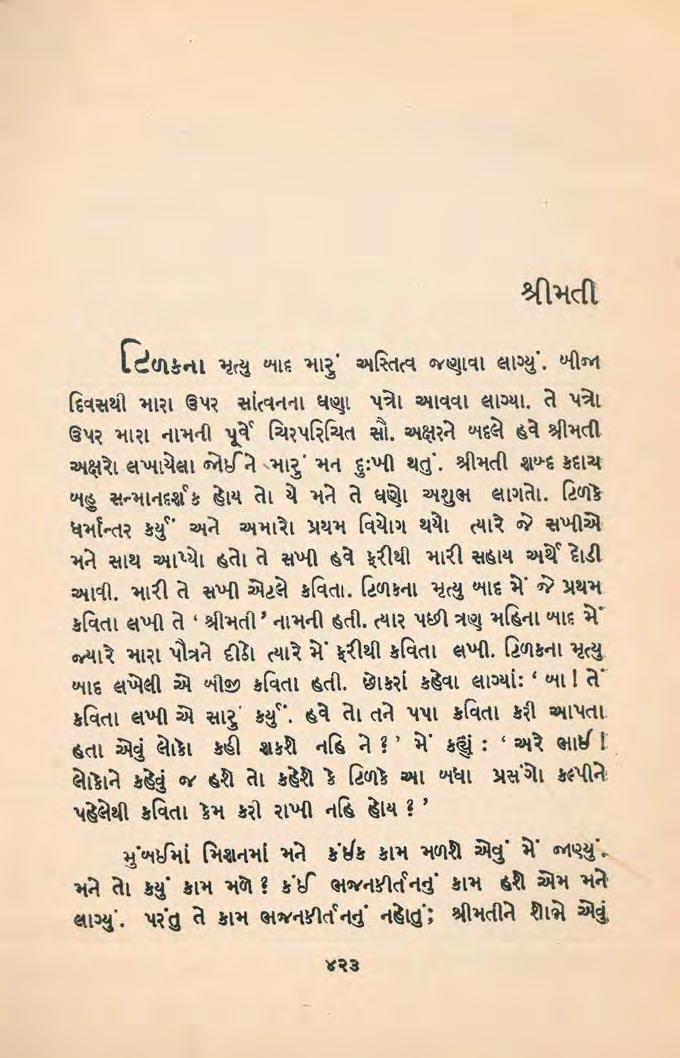 શ્રીમતી
ટિળકના મૃત્યુ બાદ મારું અસ્તિત્વ જણાવા લાગ્યું. બીજા
દિવસથી મારા ઉપર સાંત્વનના ઘણા પત્રો આવવા લાગ્યા. તે પત્રો
ઉપર મારા નામની પૂર્વે ચિરપરિચિત સૌ. અક્ષરને બદલે હવે શ્રીમતી
અક્ષરો લખાયેલા જોઈને મારું મન દુઃખી થતું. શ્રીમતી શબ્દ કદાચ
બહુ સન્માનદર્શક હોય તો યે મને તે ઘણો અશુભ લાગતો. ટિળકે
ધર્માન્તર કર્યું અને અમારો પ્રથમ વિયોગ થયો ત્યારે જે સખીએ
મને સાથ આપ્યો હતો તે સખી હવે ફરીથી મારી સહાય અર્થે દોડી
આવી. મારી તે સખી એટલે કવિતા. ટિળકના મૃત્યુ બાદ મેં જે પ્રથમ
કવિતા લખી તે ‘ શ્રીમતી ’ નામની હતી. ત્યાર પછી ત્રણ મહિના બાદ મેં
જ્યારે મારા પૌત્રને દીઠો ત્યારે મેં ફરીથી કવિતા લખી. ટિળકના મૃત્યુ
બાદ લખેલી એ બીજી કવિતા હતી. છોકરાં કહેવા લાગ્યાં: ‘ બા ! તેં
કવિતા લખી એ સારું કર્યું. હવે તો તને પપા કવિતા કરી આપતા
હતા એવું લોકો કહી શકશે નહિ ને ? ’ મેં કહ્યું : ‘ અરે ભાઈ !
લોકોને કહેવું જ હશે તો કહેશે કે ટિળકે આ બધા પ્રસંગો કલ્પીને
પહેલેથી કવિતા કેમ કરી રાખી નહિ હોય ? ’
મુંબઈમાં મિશનમાં મને કંઈક કામ મળશે એવું મેં જાણ્યું.
મને તો કયું કામ મળે ? કંઈ ભજનકીર્તનનું કામ હશે એમ મને
લાગ્યું. પરંતુ તે કામ ભજનકીર્તનનું નહોતું; શ્રીમતીને શોભે એવું
૪૨૩